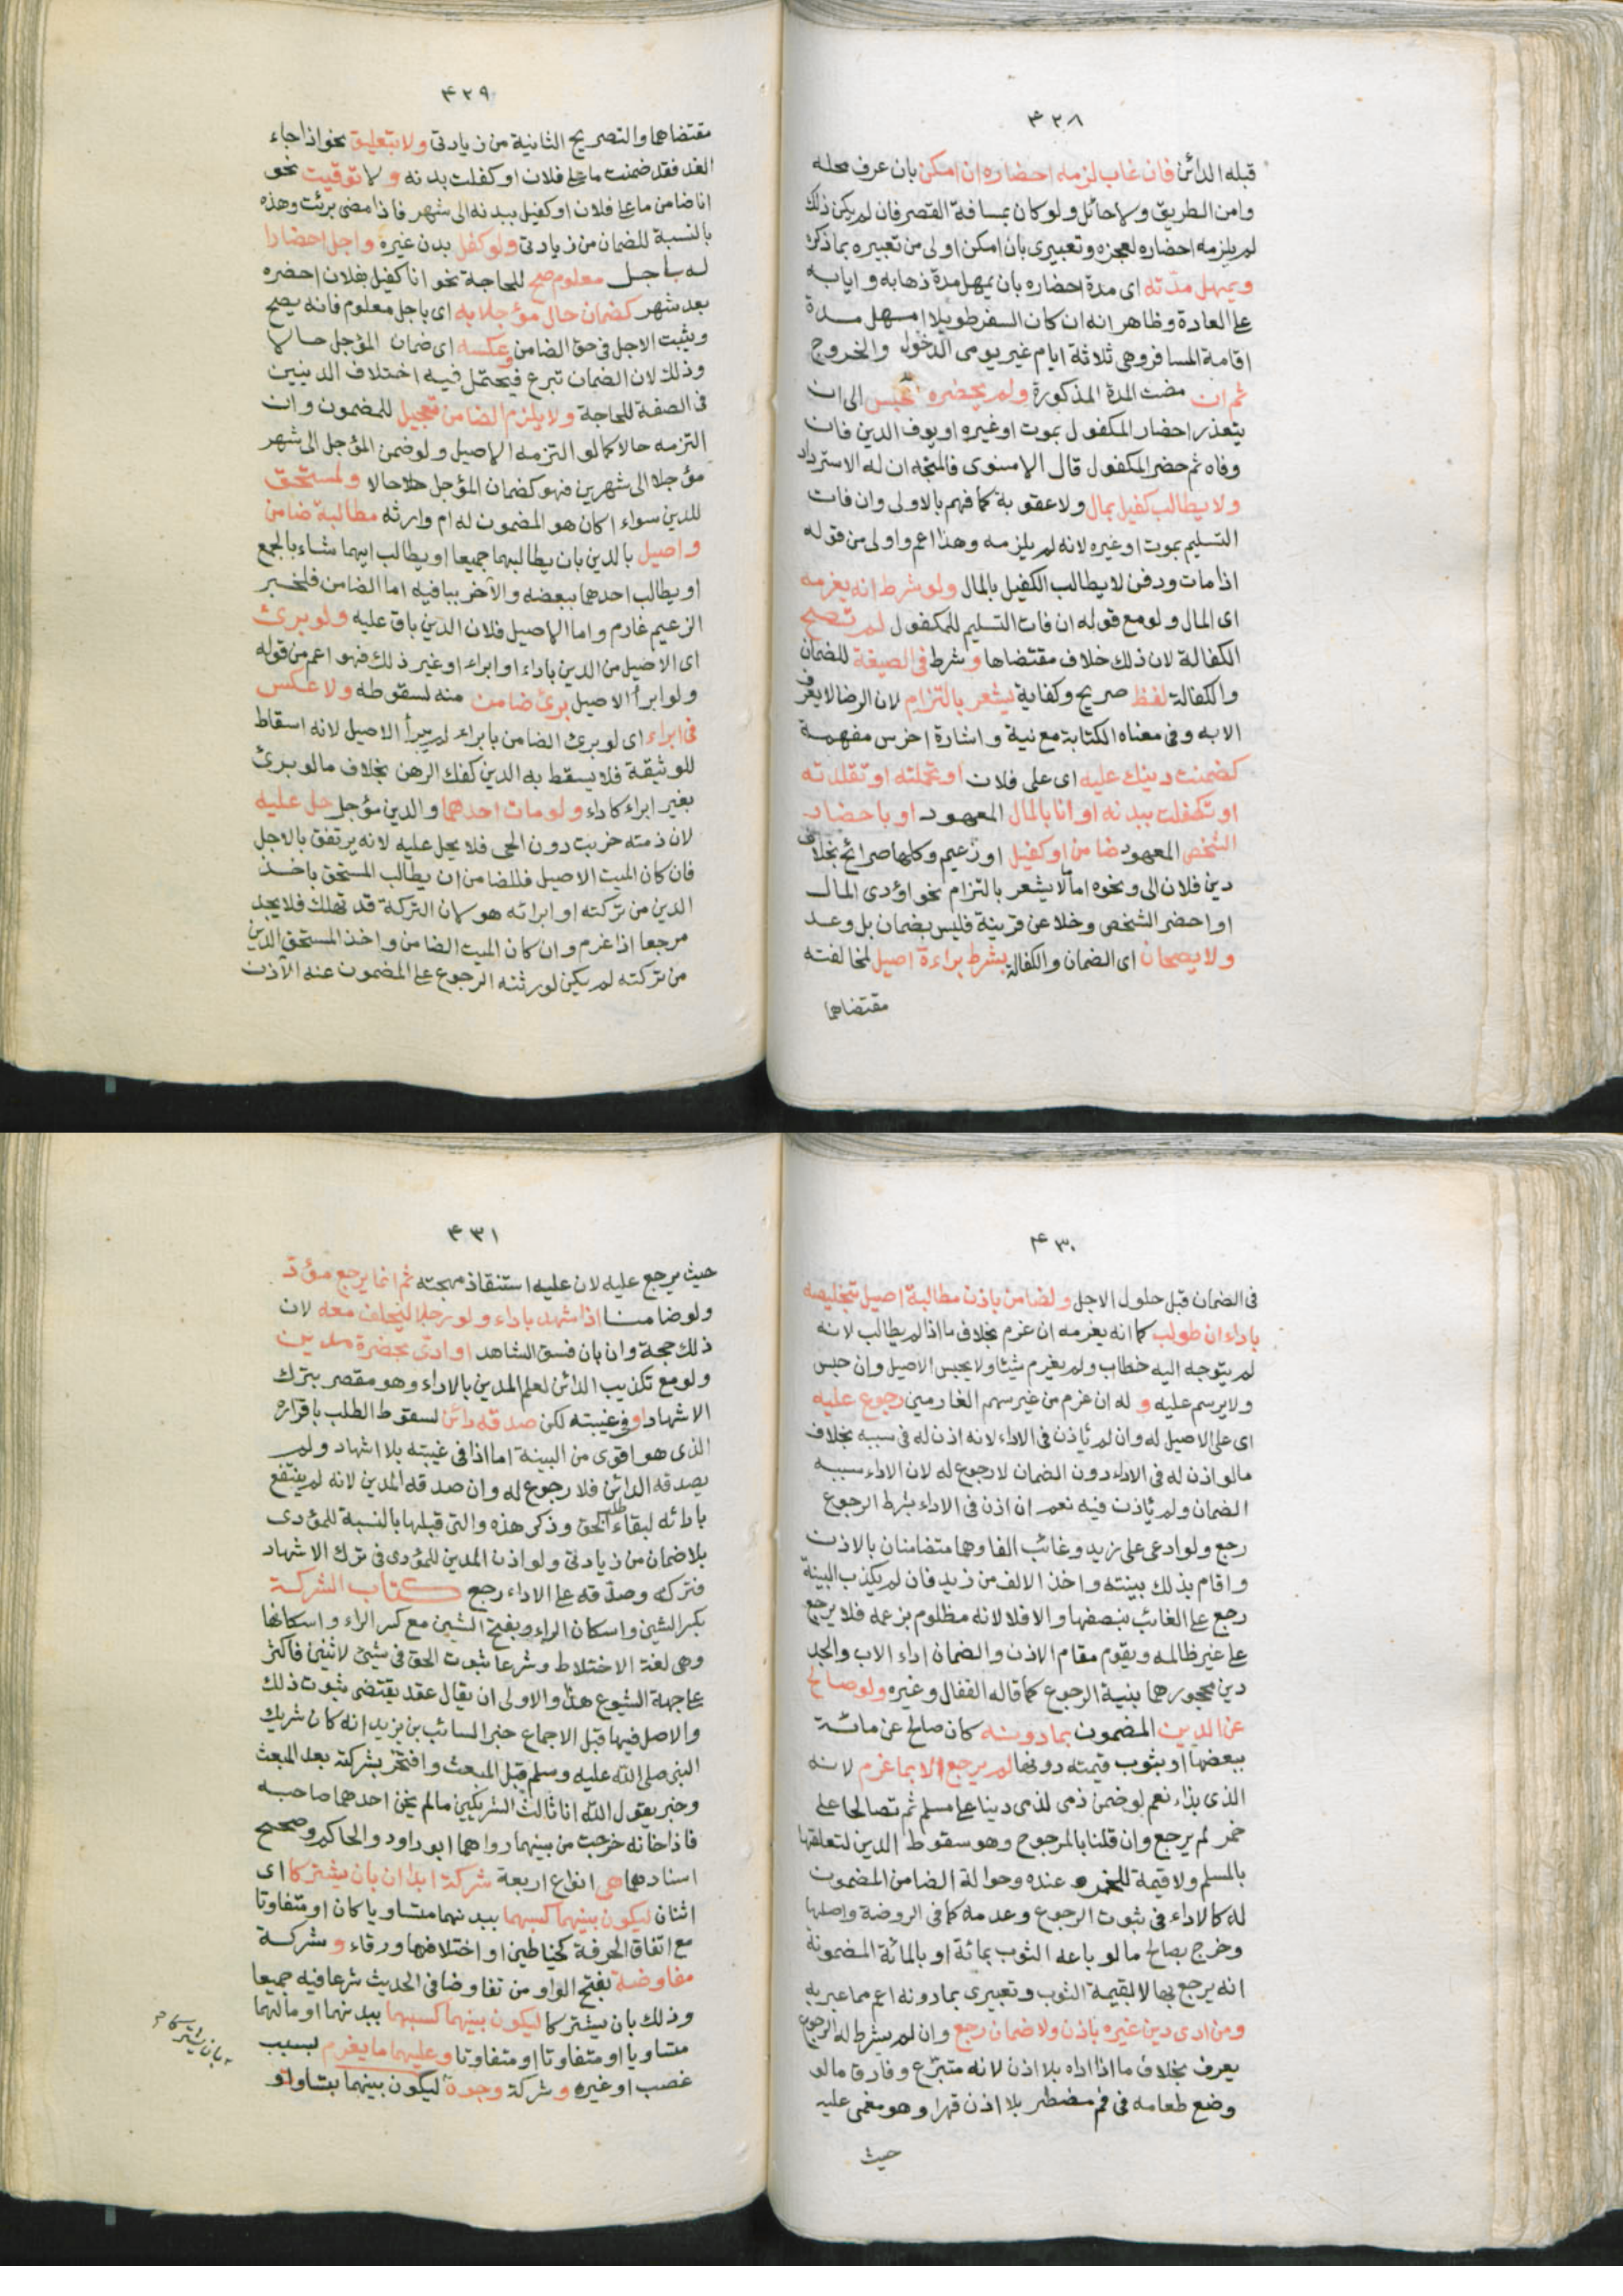 ٤٢٨
قبله الدائن فان غاب لزمه احضاره ان امكن بان عرف محله
وامن الطريق ولا حائل ولو كان بمسافة القصر فان لم يكن ذلك
لم يلزمه احضاره لعجزه وتعبيرى بان امكن اولى من تعبيره بما ذكره
ويمهل مدته اى مدة احضاره بان يمهل مدة ذهابه وايابه
على العادة وظاهر انه ان كان السفر طويلا امهل مدة
اقامة المسافر وهى ثلاثة ايام غير يومى الدخول والخروج
ثم ان مضت المدة المذكورة ولم يحضره حبس الى ان
يتعذر احضار المكفول بموت او غيره او يوف الدين فان
وفاه ثم حضر المكفول قال الاسنوى فالمتجه ان له الاسترداد
ولا يطالب كفيل بمال ولا عقوبة كما فهم بالاولى وان فات
التسليم بموت او غيره لانه لم يلزمه وهذا اعم واولى من قوله
اذا مات ودفن لا يطالب الكفيل بالمال ولو شرط انه يغرمه
اى المال ولو مع قوله ان فات التسليم للمكفول لم تصح
الكفالة لان ذلك خلاف مقتضاها وشرط فى الصيغة للضمان
والكفالة لفظ صريح وكفاية يشعر بالتزام لان الرضا لا يعرف
الا به وفى معناه الكتابة مع نية واشارة اخرس مفهمة
كضمنت دينك عليه اى على فلان او تحملته او تقلدته
او تكفلت ببدنه او انا بالمال المعهود او باحضار
الشخص المعهود ضامن او كفيل او زعيم وكلها صرائح بخلاف
دين فلان الى ونحوه اما لا يشعر بالتزام نحو اؤدى المال
او احضر الشخص وخلا عن قرينة فليس بضمان بل وعد
ولا يصحان اى الضمان والكفالة بشرط براءة اصيل لمخالفته
مقتضاهما
٤٢٩
مقتضاهما والتصريح الثانية من زيادتى ولا بتعليق نحو اذا جاء
الغد فقد ضمنت ما على فلان او كفلت بدنه ولا توقيت نحو
انا ضامن ما على فلان او كفيل ببدنه الى شهر فاذا مضى برئت وهذه
بالنسبة للضمان من زيادتى ولو كفل بدن غيره واجل احضارا
له باجل معلوم صح للحاجة نحو انا كفيل بفلان احضره
بعد شهر كضمان حال مؤجلا به اى باجل معلوم فانه يصح
ويثبت الاجل فى حق الضامن وعكسه اى ضمان المؤجل حالا
وذلك لان الضمان تبرع فيحتمل فيه اختلاف الدينين
فى الصفة للحاجة ولا يلزم الضامن تعجيل للمضمون وان
التزمه حالا كما لو التزمه الاصيل ولو ضمن المؤجل الى شهر
مؤجلا الى شهرين فهو كضمان المؤجل حالا ولمستحق
للدين سواء اكان هو المضمون له ام وارثه مطالبة ضامن
واصيل بالدين بان يطالبهما جميعا او يطالب ايهما شاء بالجمع
او يطالب احدهما ببعضه والآخر بباقيه اما الضامن فلخبر
الزعيم غارم واما الاصيل فلان الدين باق عليه ولو برئ
اى الاصيل من الدين باداء او ابراء او غير ذلك فهو اعم من قوله
ولو ابرأ الاصيل برئ ضامن منه لسقوطه ولا عكس
فى ابراء اى لو برئ الضامن بابراء لم يبرأ الاصيل لانه اسقاط
للوثيقة فلا يسقط به الدين كفك الرهن بخلاف ما لو برئ
بغير ابراء كاداء ولو مات احدهما والدين مؤجل حل عليه
لان ذمته خربت دون الحى فلا يحل عليه لانه يرتفق بالاجل
فان كان الميت الاصيل فللضامن ان يطالب المستحق باخذ
الدين من تركته او ابرائه هو لان التركة قد تهلك فلا يجد
مرجعا اذا غرم وان كان الميت الضامن واخذ المستحق الدين
من تركته لم يكن لورثته الرجوع على المضمون عنه الآذن
٤٣٠
فى الضمان قبل حلول الاجل ولضامن باذن مطالبة اصيل بتخليصه
باداء ان طولب كما انه يغرمه ان غرم بخلاف ما اذا لم يطالب لانه
لم يتوجه اليه خطاب ولم يغرم شيئا ولا يحبس الاصيل وان حبس
ولا يرسم عليه و له ان غرم من غير سهم الغارمين رجوع عليه
اى على الاصيل له وان لم يأذن فى الاداء لانه اذن له فى سببه بخلاف
ما لو اذن له فى الاداء دون الضمان لا رجوع له لان الاداء سببه
الضمان ولم يأذن فيه نعم ان اذن فى الاداء بشرط الرجوع
رجع ولو ادعى على زيد وغائب الفا وهما متضامنان بالاذن
واقام بذلك بينته واخذ الالف من زيد فان لم يكذب البينة
رجع على الغائب بنصفها والا فلا لانه مظلوم بزعمه فلا يرجع
على غير ظالمه ويقوم مقام الاذن والضمان اداء الاب والجد
دين محجورهما بنية الرجوع كما قاله القفال وغيره ولو صالح
عن الدين المضمون بما دونه كان صالح عن مائة
ببعضها او بثوب قيمته دونها لم يرجع الا بما غرم لانه
الذى بذله نعم لو ضمن ذمى لذمى دينا على مسلم ثم تصالحا على
خمر لم يرجع وان قلنا بالمرجوح وهو سقوط الدين لتعلقها
بالمسلم ولا قيمة للخمر عنده وحوالة الضامن المضمون
له كالاداء فى ثبوت الرجوع وعدمه كما فى الروضة واصلها
وخرج بصالح ما لو باعه الثوب بمائة او بالمائة المضمونة
انه يرجع بها لا بقيمة الثوب وتعبيرى بما دونه اعم مما عبر به
ومن ادى دين غيره باذن ولا ضمان رجع وان لم يشرط له الرجوع
يعرف بخلاف ما اذا اداه بلا اذن لانه متبرع وفارق ما لو
وضع طعامه فى فم مضطر بلا اذن قهرا وهو مغمى عليه
حيث
٤٣١
حيث يرجع عليه لان عليه استنقاذ مهجته ثم انما يرجع مؤد
ولو ضامنا اذا شهد باداء ولو رجلا ليحلف معه لان
ذلك حجة وان بان فسق الشاهد او ادى بحضرة مدين
ولو مع تكذيب الدائن لعلم المدين بالاداء وهو مقصر بترك
الاشهاد او فى غيبته لكن صدقه دائن لسقوط الطلب باقراره
الذى هو اقوى من البينة اما اذا فى غيبته بلا اشهاد ولم
يصدقه الدائن فلا رجوع له وان صدقه المدين لانه لم ينتفع
بادائه لبقاء طلب الحق وذكر هذه والتى قبلها بالنسبة للمؤدى
بلا ضمان من زيادتى ولو اذن المدين للمؤدى فى ترك الاشهاد
فتركه وصدقه على الاداء رجع كتاب الشركة
بكسر الشين واسكان الراء وبفتح الشين مع كسر الراء واسكانها
وهى لغة الاختلاط وشرعا ثبوت الحق فى شيئ لاثنين فاكثر
على جهة الشيوع هذا والاولى ان يقال عقد يقتضى ثبوت ذلك
والاصل فيها قبل الاجماع خبر السائب بن يزيد انه كان شريك
النبى صلى الله عليه وسلم قبل المبعث وافتخر بشركته بعد المبعث
وخبر يقول الله انا ثالث الشريكين ما لم يخن احدهما صاحبه
فاذا خانه خرجت من بينهما رواهما ابو داود والحاكم وصحح
اسنادهما هى انواع اربعة شركة ابدان بان يشتركا اى
اثنان ليكون بينهما كسبهما ببدنهما متساويا كان او متفاوتا
مع اتفاق الحرفة كخياطين او اختلافهما ورقاء وشركة
مفاوضة بفتح الواو من تفاوضا فى الحديث شرعا فيه جميعا
وذلك بان يشتركا ليكون بينهما كسبهما ببدنهما او مالهما
متساويا او متفاوتا او متفاوتا وعليهما ما يغرم بسبب
غصب او غيره وشركة وجوه ليكون بينهما بتساو او
بان يشتركا صح